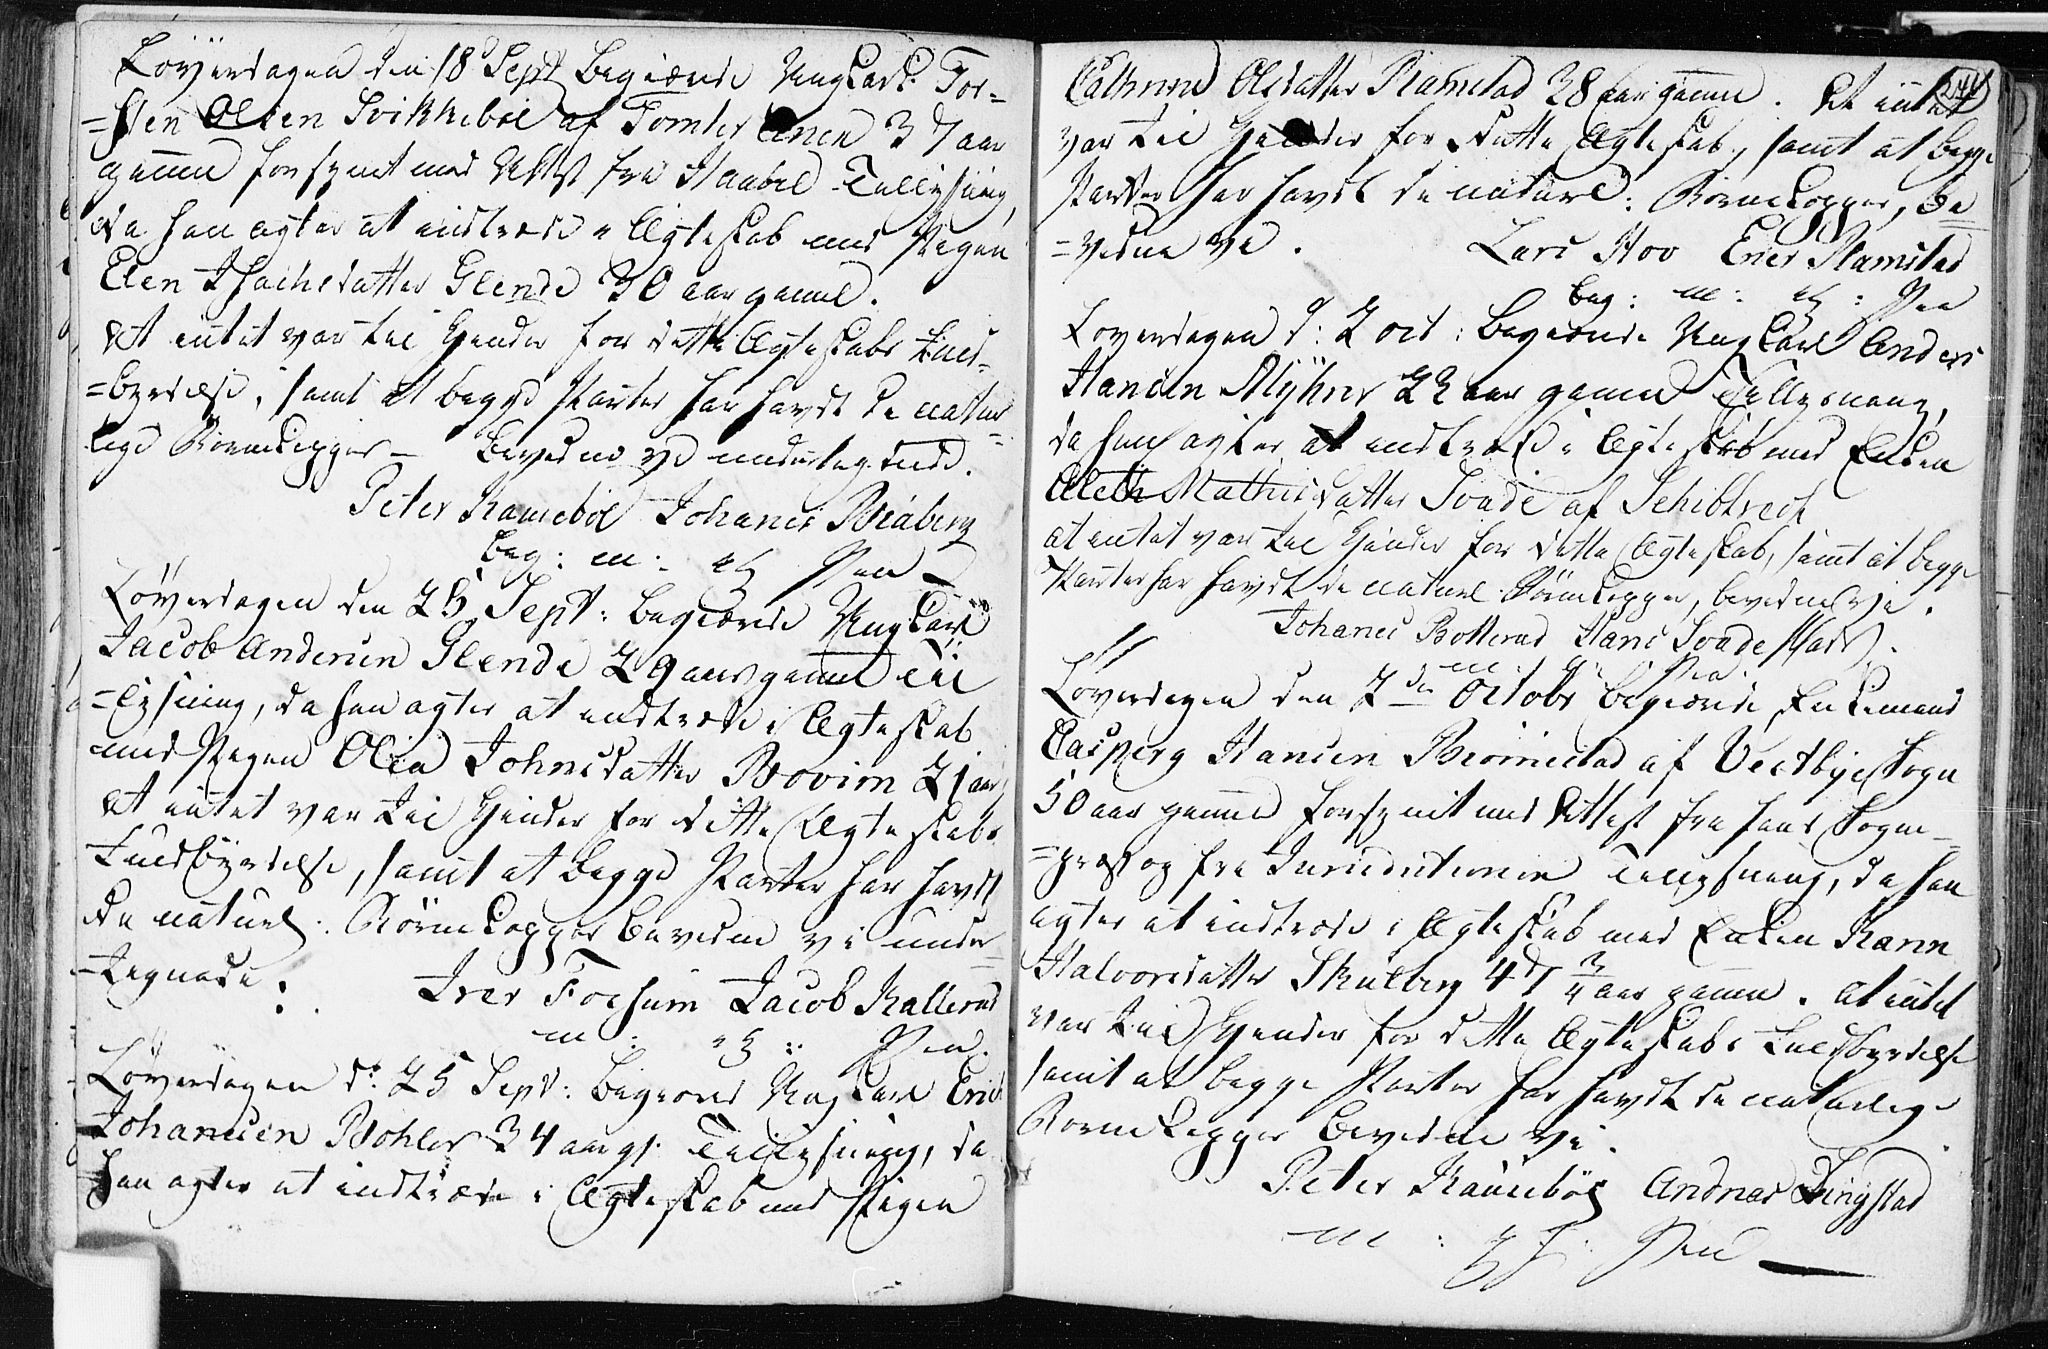 Löverdagen den 18 Sept begierede Ungkarl: Tor-
=sten Olsen Svikkebøl af Tomter Anex 37 aar
gammel forsynet med Attest fra Haabøl Tillysning,
da han agter at indtræde i Ægteskab med Pigen
Elen Isachsdatter Glende 30 aar gamel.
At intet var til Hinder for dette Ægteskabs Fuld-
=byrdelse, samt at begge Parter har havdt de natur-
lige Børnekopper - bevidne vi undertegnede.
Peter Kausebøl Johanes Braaberg
beg: m: ## Pen
Löverdagen den 25 Sept: begierede Ungkarl
Jacob Andersen Glende 29 aar gamel Til
=lysning, da han agter at indtræde i Ægteskab
med Pigen Olea Johnsdatter Bovim 21 aar,
at intet var til Hinder for dette Ægteskabs
Fuldbyrdelse, samt at begge Parter har havdt
de naturl: Børnekopper bevidne vi under-
=tegnede:
Iver Fossum Jacob Kallerud
m: ## Pen.
Löverdagen d: 25 Sept: begierede Ungkarl Erick
Johansen Bøhler 34 aar gl: Tillysning, da
han agter at indtræde i Ægteskab med Pigen
241
Cathrine Olsdatter Ramstad 28 aar gamel. At intet
var til Hinder for dette Ægteskab, samt at begge
Parter har havdt de naturl: Børnekopper, be
=vidne vi. Lars Hov Ener Ramstad
beg: m: ## : Pen
Loverdagen d: 2 oct: begierede Ungkarl Anders
Hansen Myhrer 22 aar gamel Tillysning,
da han agter at indtræde i Ægteskab med Enken
Aleth Mathisdatter Svade af Schibtvedt
at intet var til Hinder for dette Ægteskab, samt at begge
Parter har havdt de naturl Børnekopper, bevidne vi.
Johanes Botterud Hans Svade
m: Pen
Löverdagen den 2den Octobr begierede Enkemand
Casperg Hansen Brømstad af Vestbye Sogn
50 aar gamel forsynet med Attest fra hans Sogne-
=præst og fra Jurisdictionen Tillysning, da han
agter at indtræde i Ægteskab med Enken Karen
Halvorsdatter Skulberg 47 3/4 aar gamel. At intet
var til Hinder for dette Ægteskabs Fuldbyrdelse
samt at begge Parter har havdt de naturlige
Børnekopper bevidne vi.
Peter Kausebøl Andreas Ringstad
m: Pen